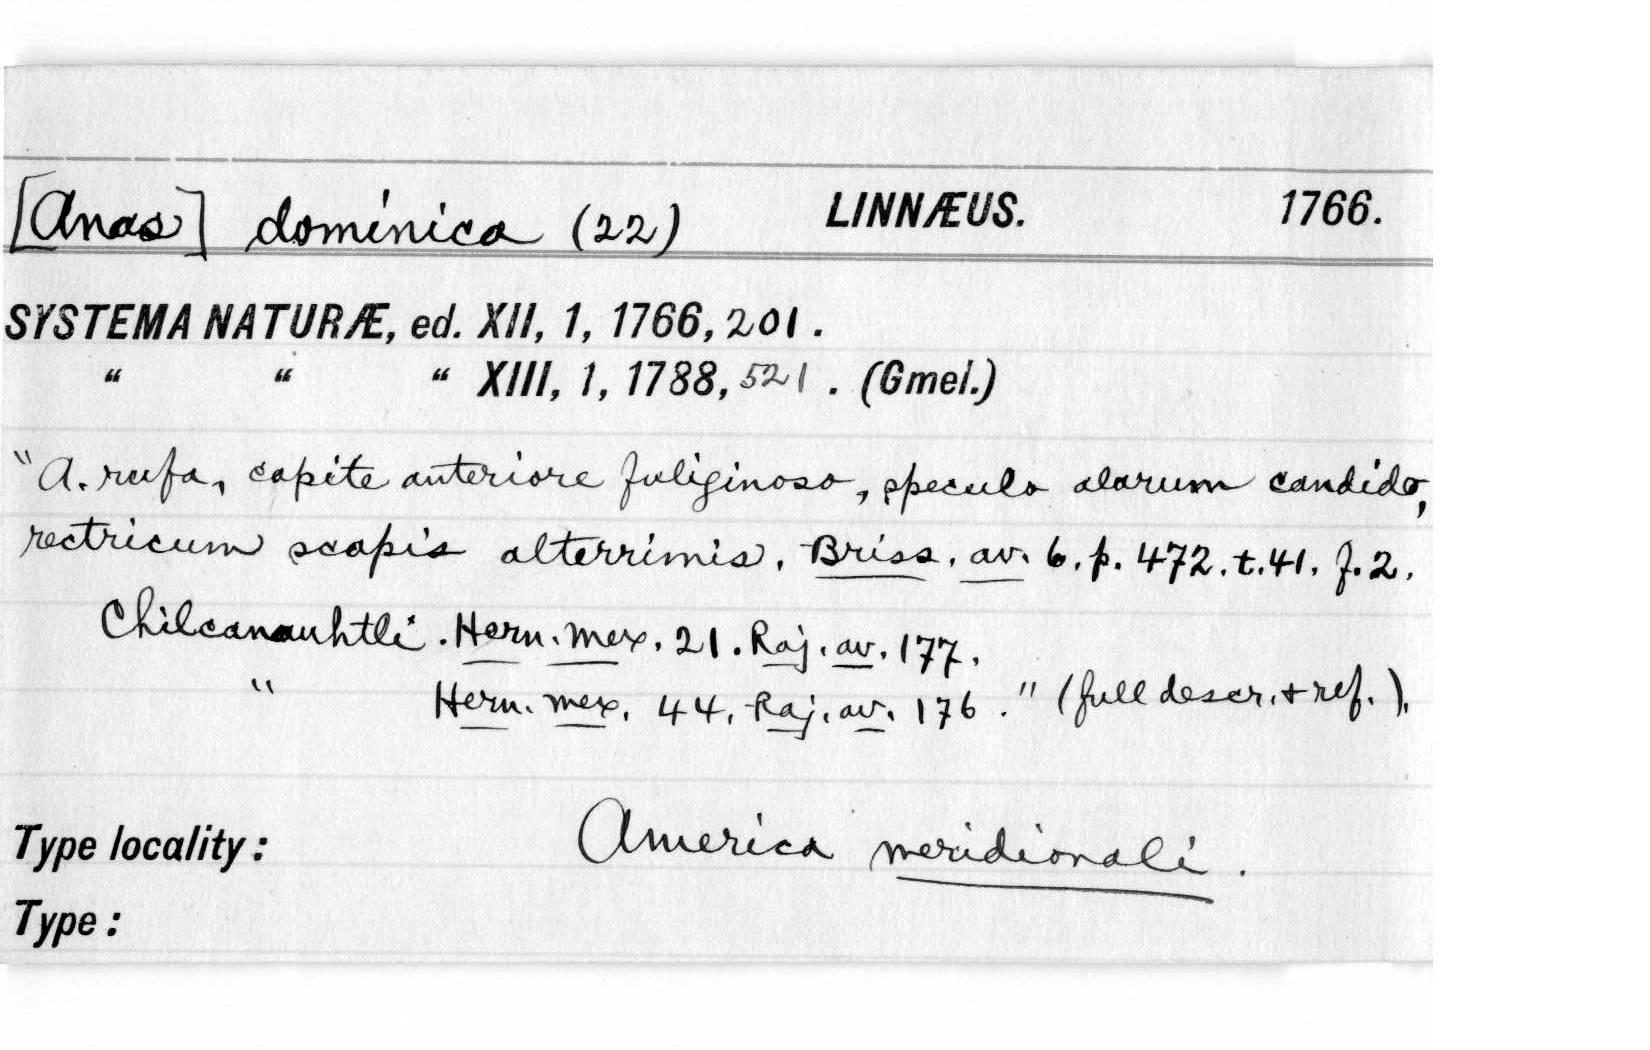 [Anas] dominica (22) LINNÆUS. 1766.
SYSTEMA NATURÆ, ed. XII, 1, 1766, 201.
“ “ “ XIII, 1, 1788, 521. (Gmel.)
"A. rufa, capite anteriore fuliginoso, speculo alarum candido,
rectricum scapis alterrimis. Briss. av. 6. p. 472. t. 41. f. 2.
Chilcanauhtli. Hern. mex. 21. Raj. av. 177.
" Hern. mex. 44. Raj. av. 176." (full descr. + ref.).
Type locality: America meridionali.
Type: